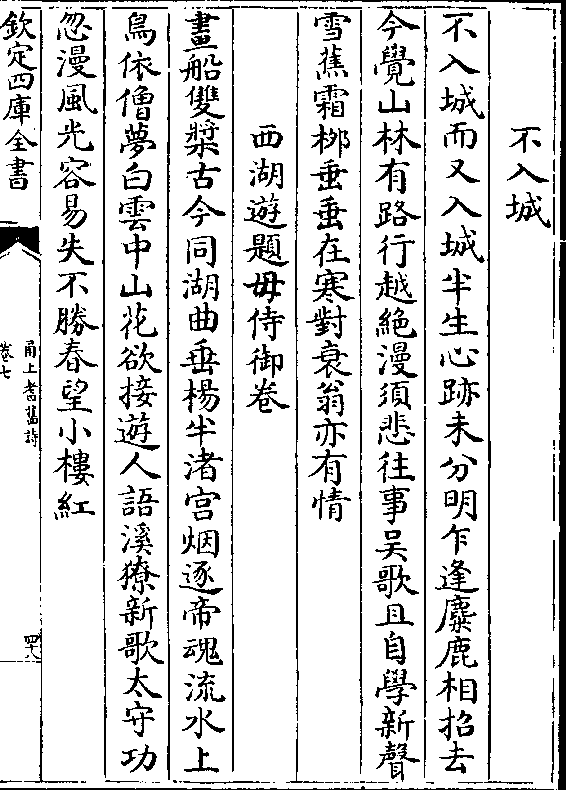 不入城
不入城而又入城半生心跡未分明乍逢麋鹿相招去
今覺山林有路行越絶漫須悲往事吴歌且自學新聲
雪蕉霜栁垂垂在寒對衰翁亦有情
西湖遊題毋侍御卷
畫船雙槳古今同湖曲垂楊半渚宫烟逐帝魂流水上
鳥依僧夢白雲中山花欲接遊人語溪獠新歌太守功
忽漫風光容易失不勝春望小樓紅
欽定四庫全書
甬上耆舊詩
卷七